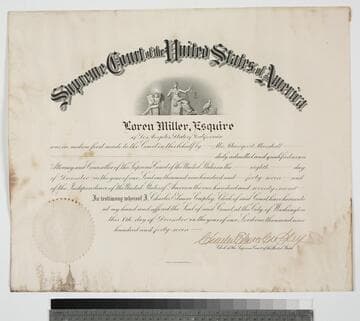 Supreme Court of the United States of America
Loren Miller, Esquire
of Los Angeles, State of California
was on motion first made to the Court in this behalf by Mr. Thurgood Marshall
duly admitted and qualified as an
Attorney and Counsellor of the Supreme Court of the United States on the eighth day
of December in the year of our Lord one thousand nine hundred and forty-seven and
of the Independence of the United States of America the one hundred and seventy-second.
In testimony whereof I, Charles Elmore Cropley, Clerk of said Court have hereunto
set my hand and affixed the Seal of said Court at the City of Washington
this 8th day of December in the year of our Lord one thousand nine
hundred and forty-seven
Charles Elmore Cropley
Clerk of the Supreme Court of the United States